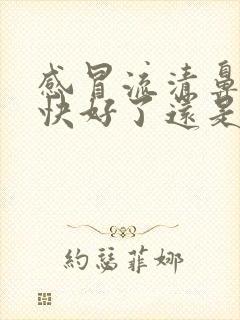 感冒流清鼻
快好了還是
約瑟菲娜